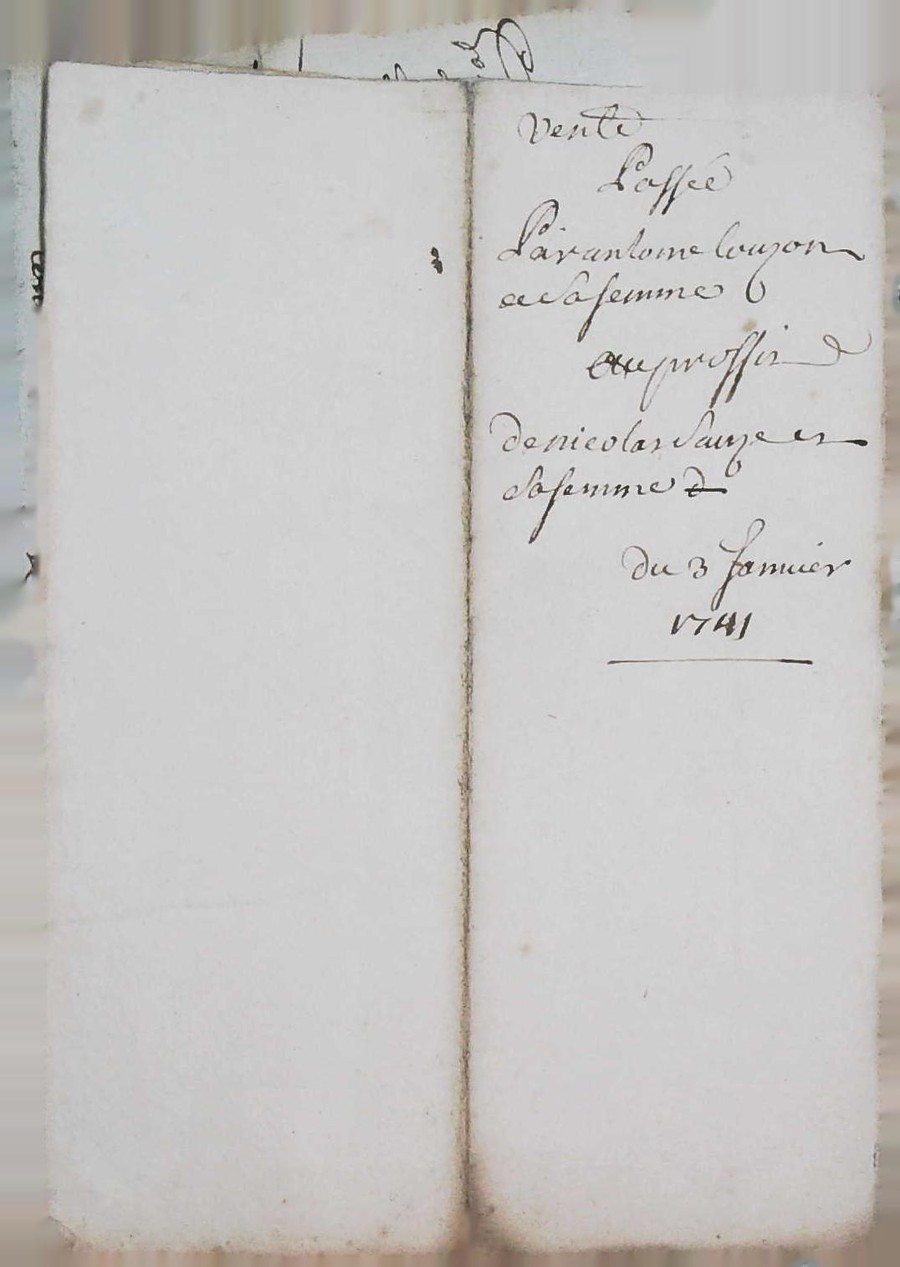 Vente
Passée
Par antoine Couzon
et Sa femme
au proffit
de nicolas Sauze et
Sa femme
du 3 Janvier
1741